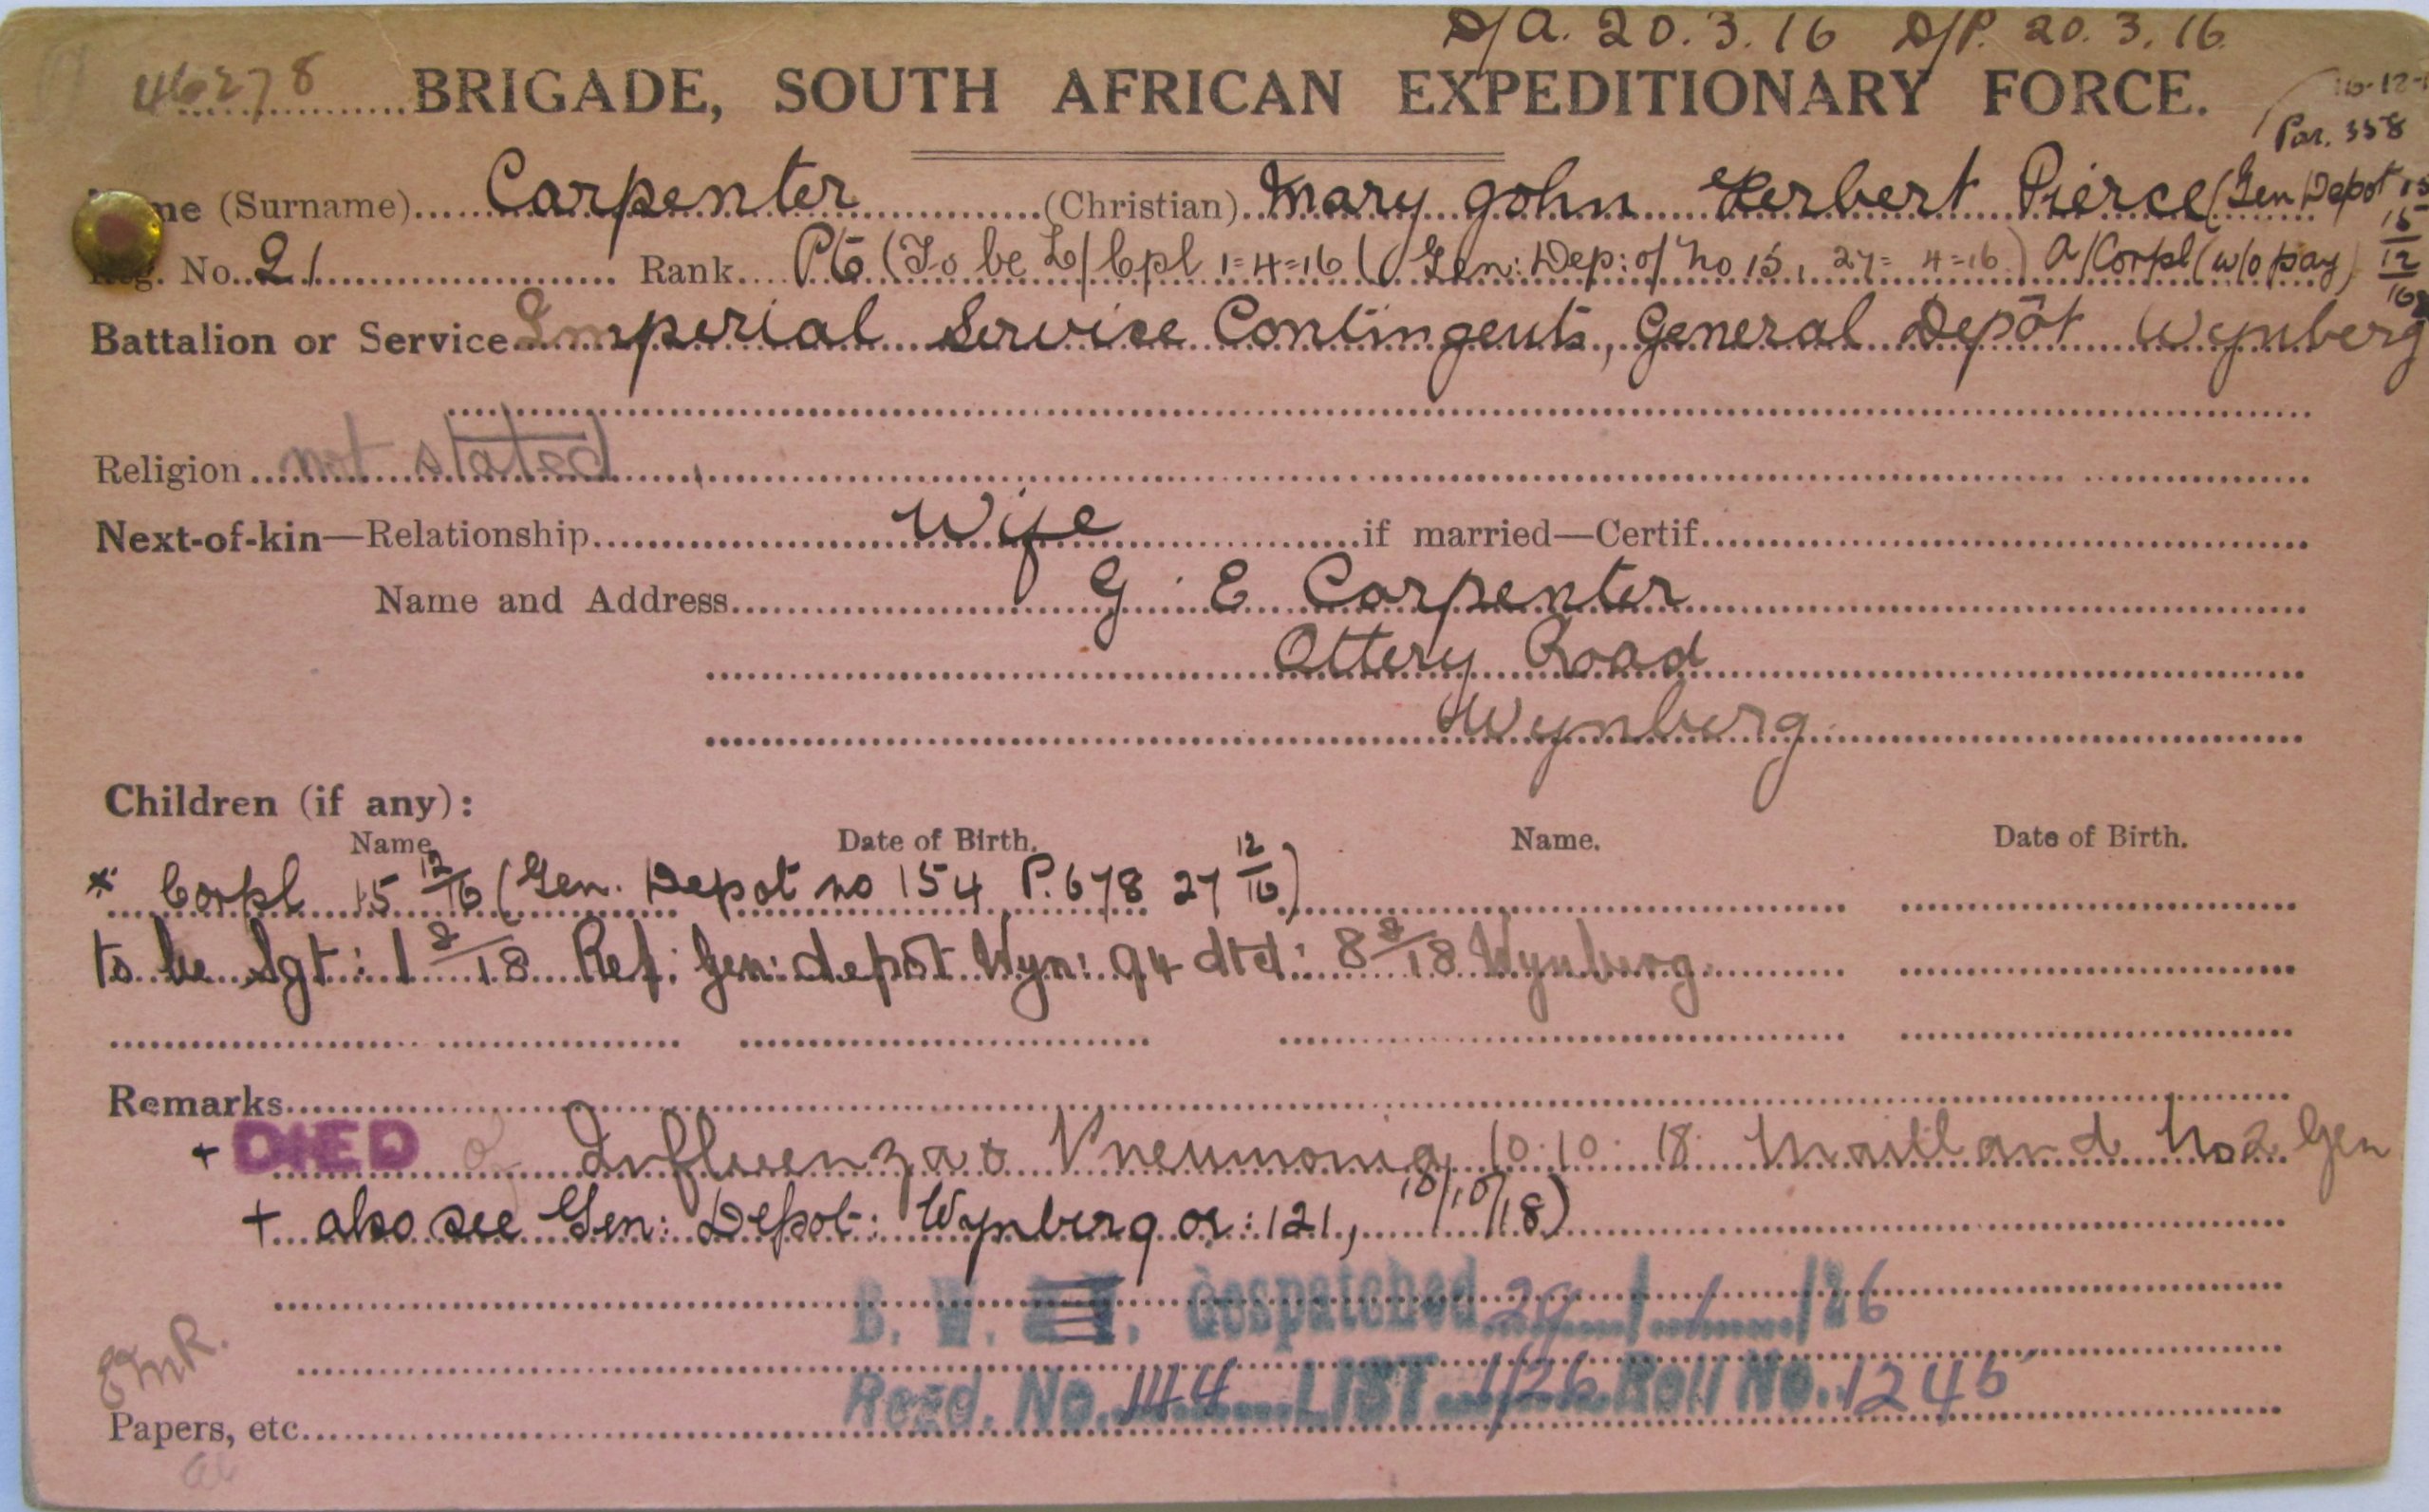 D/A. 20.3.16 D/P. 20.3.16
46278 BRIGADE, SOUTH AFRICAN EXPEDITIONARY FORCE.
16-12-
Par. 358
(Surname) Carpenter (Christian) Mary John Herbert Pierce (Gen Depot
No. 21 Rank Pte (To be L/Cpl 1=4=16 (Gen: Dep: o/ No 15, 27= 4=16) A/Corpl (w/o pay) 15/12/16
Battalion or Service Imperial Service Contingents, General Depôt Wynberg
Religion not stated
Next-of-kin—Relationship Wife if married—Certif.
Name and Address G. E Carpenter
Ottery Road
Wynberg
Children (if any):
Name Date of Birth. Name. Date of Birth.
* Corpl 15 12/16 (Gen. Depot no 154 P. 678 27 12/16)
to be Sgt: 1 8/18 Ref: Gen: depôt Wyn: 94 dtd: 8 8/18 Wynberg
Remarks
+ DIED of Influenza & Pneumonia 10.10.18. Maitland No 2 Gen
+ also see Gen: Depot: Wynberg or: 121, 18/10/18)
B. W. despatched 29/1/26
Regd. No. 144 LIST 1/26 Roll No. 1245
Papers, etc.